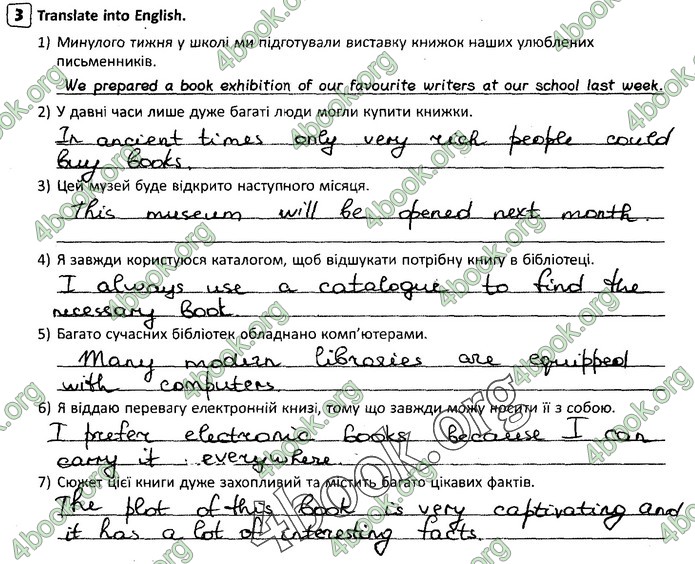 3 Translate into English.
1) Минулого тижня у школі ми підготували виставку книжок наших улюблених
письменників.
We prepared a book exhibition of our favourite writers at our school last week.
2) У давні часи лише дуже багаті люди могли купити книжки.
In ancient times only very rich people could
buy books.
3) Цей музей буде відкрито наступного місяця.
This museum will be opened next month.
4) Я завжди користуюся каталогом, щоб відшукати потрібну книгу в бібліотеці.
I always use a catalogue to find the
necessary book.
5) Багато сучасних бібліотек обладнано комп'ютерами.
Many modern libraries are equipped
with computers.
6) Я віддаю перевагу електронній книзі, тому що завжди можу носити її з собою.
I prefer electronic books because I can
carry it everywhere
7) Сюжет цієї книги дуже захопливий та містить багато цікавих фактів.
The plot of this book is very captivating and
it has a lot of interesting facts.
4book.org